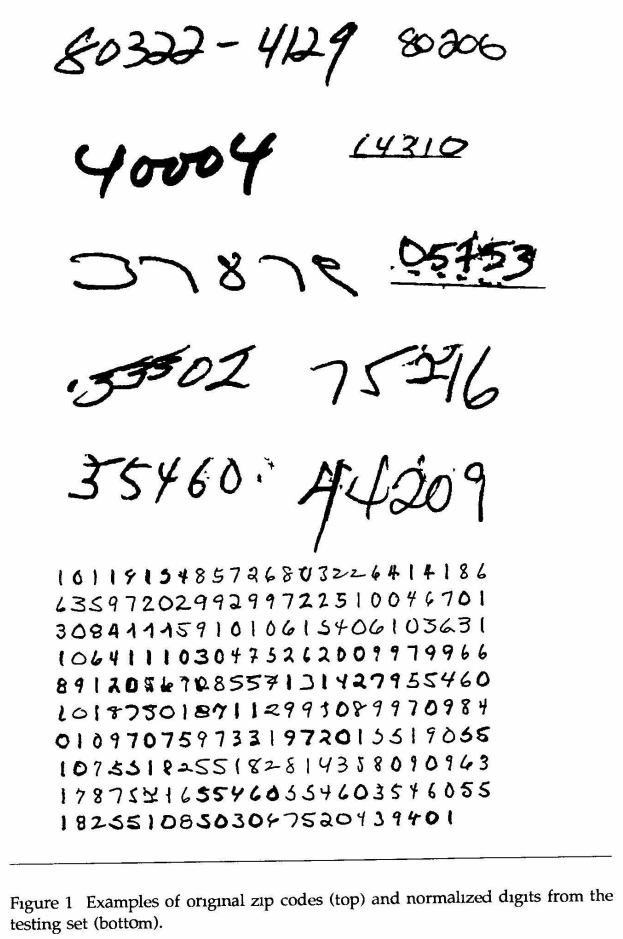 80322-4129 80206
40004 14310
37878 05753
35502 75216
35460 44209
1011915485726803226414186
6359720299299722510046701
3084111591010615406103631
1064111030475262009979966
8912056708557131427955460
1018730187112993089970984
0109707597331972015519055
1075518255182814358090943
1787521655460554603546055
18255108503047520439401
Figure 1 Examples of original zip codes (top) and normalized digits from the
testing set (bottom).